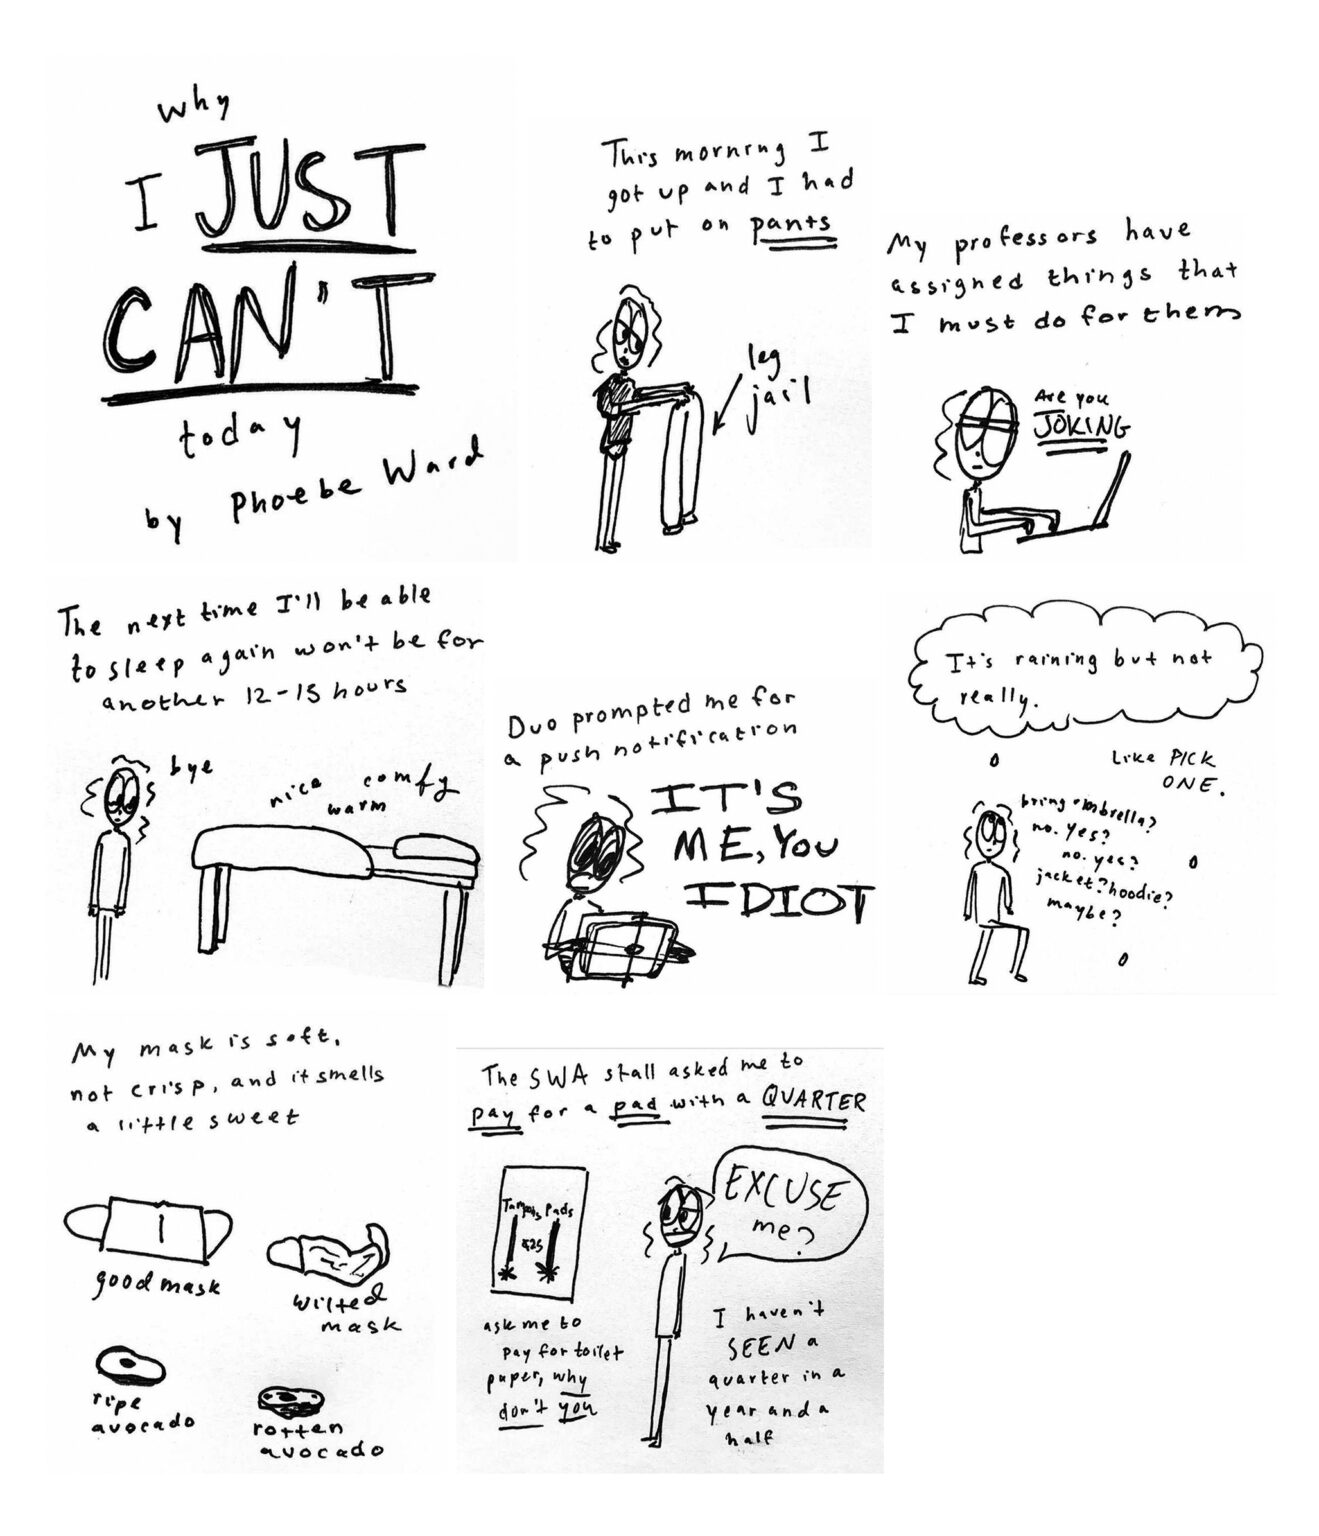 why
I JUST
CAN'T
today
by Phoebe Ward
This morning I
got up and I had
to put on pants
leg
jail
My professors have
assigned things that
I must do for them
Are you
JOKING
The next time I'll be able
to sleep again won't be for
another 12-15 hours
bye
nice comfy
warm
Duo prompted me for
a push notification
IT'S
ME, YOU
IDIOT
It's raining but not
really.
Like PICK
ONE.
bring umbrella?
no. yes?
no. yes?
jacket? hoodie?
maybe?
My mask is soft,
not crisp, and it smells
a little sweet
good mask
wilted
mask
ripe
avocado
rotten
avocado
The SWA stall asked me to
pay for a pad with a QUARTER
Tampons Pads
$.25
EXCUSE
me?
ask me to
pay for toilet
paper, why
don't you
I haven't
SEEN a
quarter in a
year and a
half